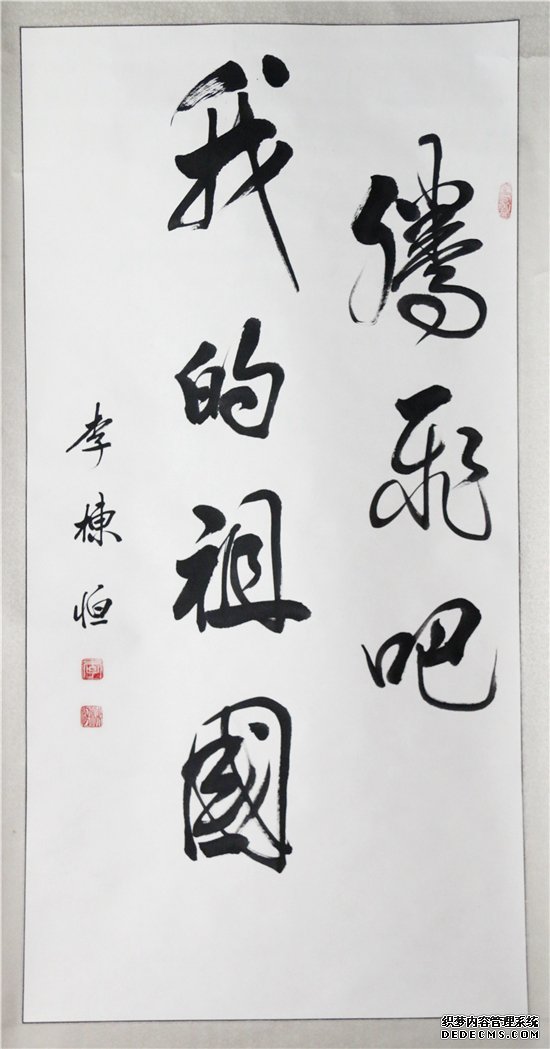 騰飛吧
我的祖國
李棟恒
织梦内容管理系统
DEDECMS.COM